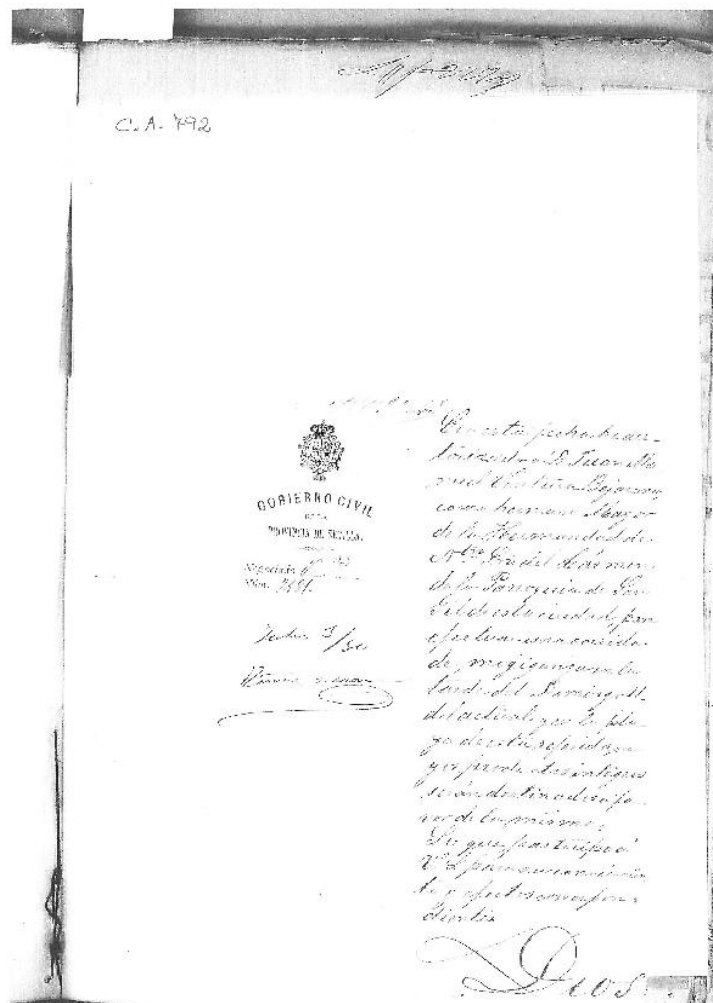 C.A. 792
GOBIERNO CIVIL
DE LA
PROVINCIA DE SEVILLA.
Negociado 6º
Núm. 7451.
En esta fecha he au-
torizado á D. Juan Ma
nuel Bejarano,
como hermano Mayor
de la Hermandad de
Ntra. Sra. del Cármen
de la Parroquia de San
Gil de esta ciudad, para
efectuar una corrida
de mogiganga en la
tarde del Domingo 11.
del actual y en la pla
za de esta referida, cu
yos productos integros
serán destinados á fa-
vor de la misma.
Lo que participo á
V.S. para su conocimien
to y efectos correspon-
dientes.
Dios